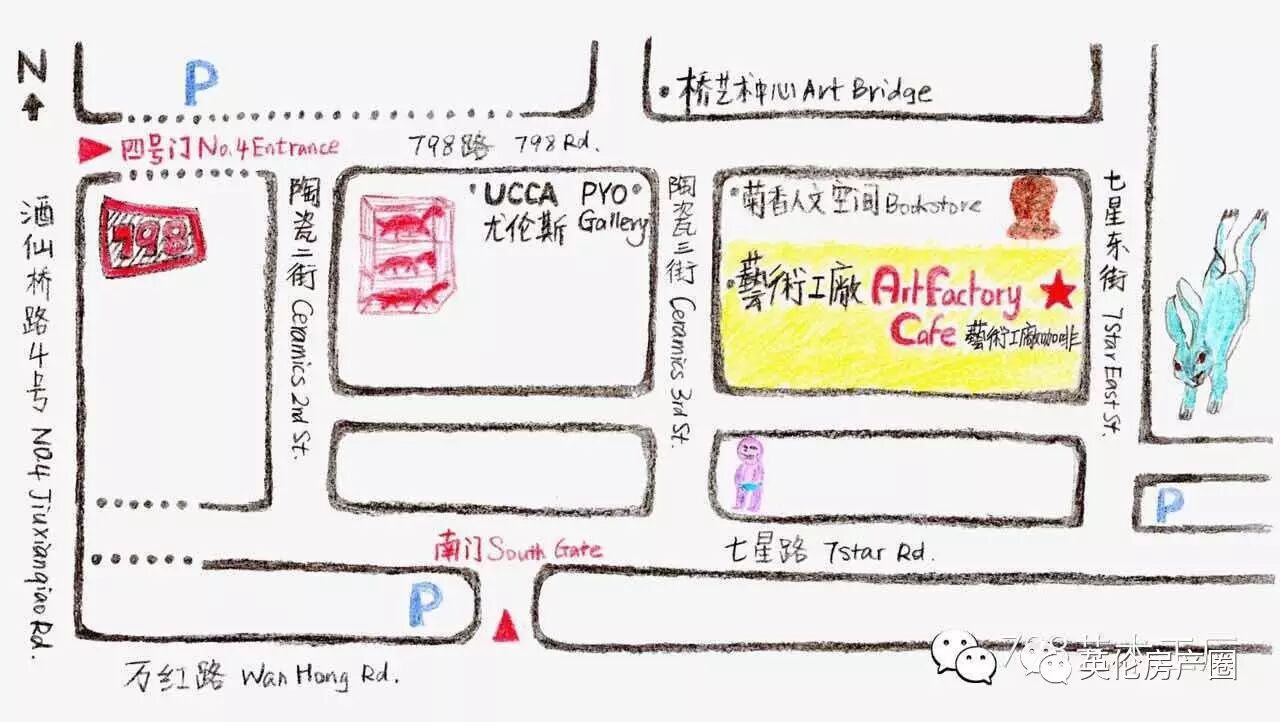 N
P
桥艺术中心 Art Bridge
四号门 No.4 Entrance
798路 798 Rd.
酒仙桥路4号 NO.4 Jiuxianqiao Rd.
798
陶瓷二街 Ceramics 2nd St.
UCCA
尤伦斯
PYO
Gallery
陶瓷三街 Ceramics 3rd St.
菊香人文空间 Bookstore
藝術工廠 Art Factory
Cafe 藝術工廠咖啡
七星东街 7Star East St.
P
南门 South Gate
七星路 7star Rd.
P
万红路 Wan Hong Rd.
798
英伦房产圈